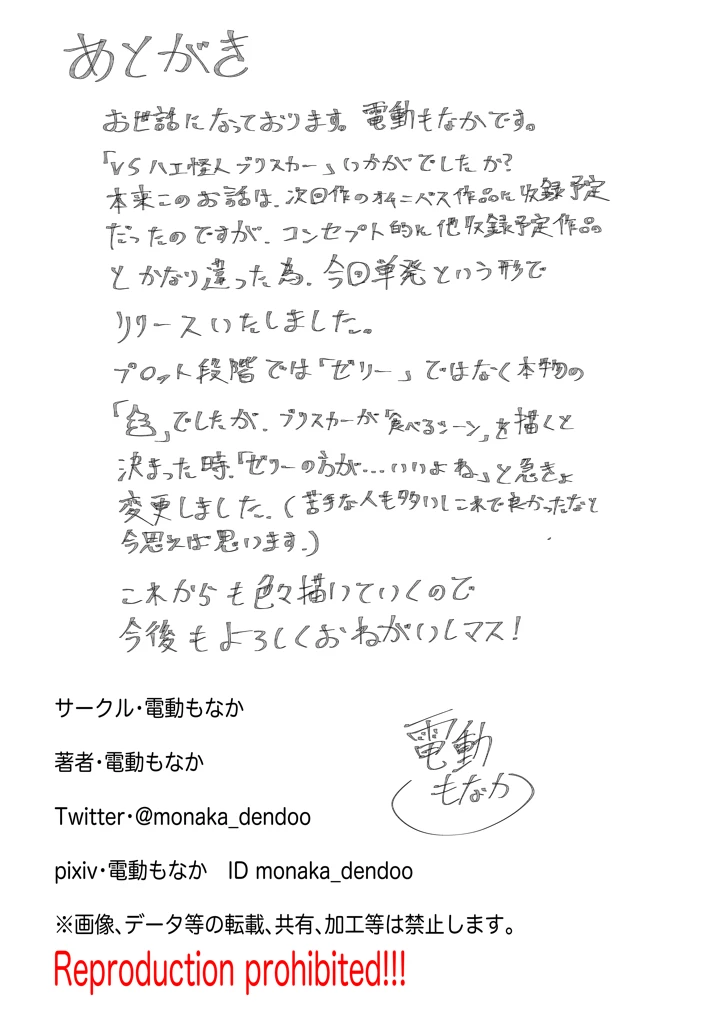 あとがき
お世話になっております。電動もなかです。
「VSハエ怪人ブリスカー」いかがでしたか?
本来このお話は、次回作のオムニバス作品に収録予定
だったのですが、コンセプト的に他収録予定作品
とかなり違った為、今回単発という形で
リリースいたしました。
プロット段階では「ゼリー」ではなく本物の
でしたが、ブリスカーが「食べるシーン」を描くと
決まった時、「ゼリーの方が…いいよね」と急きょ
変更しました。(苦手な人も多いしこれで良かったなと
今思えば思います。)
これからも色々描いていくので
今後もよろしくおねがいしマス!
サークル・電動もなか
著者・電動もなか
Twitter・@monaka_dendoo
pixiv・電動もなか ID monaka_dendoo
電動
もなか
※画像、データ等の転載、共有、加工等は禁止します。
Reproduction prohibited!!!